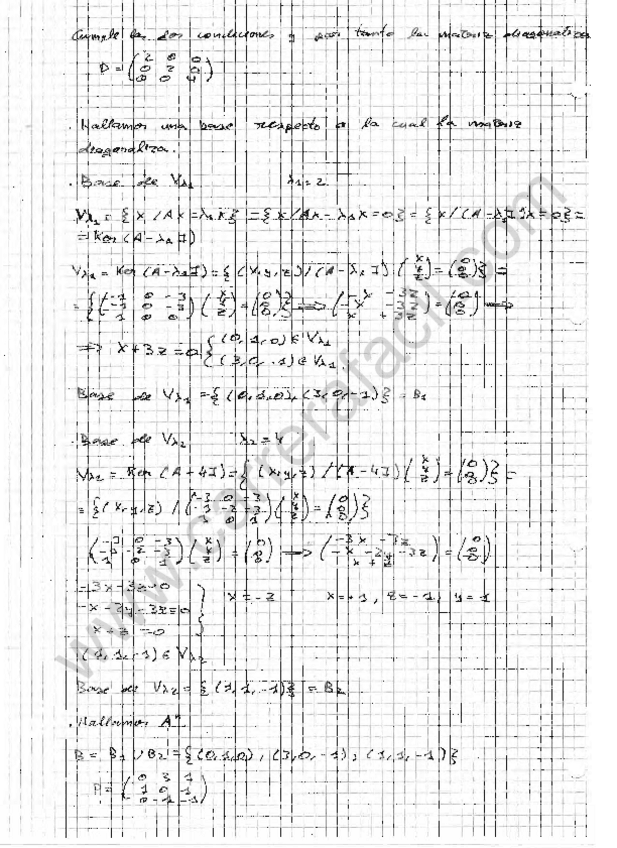 Cumple las dos condiciones y por tanto la matriz diagonaliza
D = (2 0 0
0 2 0
0 0 4)
. Hallamos una base respecto a la cual la matriz
diagonaliza.
. Base de Vλ1 λ1 = 2
Vλ1 = { X / AX = λ1X } = { X / AX - λ1X = 0 } = { X / (A - λ1I)X = 0 } =
= Ker (A - λ1I)
Vλ1 = Ker (A - λ1I) = { (x, y, z) / (A - λ1I) · (x y z) = (0 0 0) } =
= { (-1 0 -3
-1 0 -3
1 0 3) (x y z) = (0 0 0) } ⟹ (-x -3z
-x -3z
x +3z) = (0 0 0) ⟹
⟹ x + 3z = 0 { (0, 1, 0) ∈ Vλ1
(3, 0, -1) ∈ Vλ1
Base de Vλ1 = { (0, 1, 0), (3, 0, -1) } = B1
. Base de Vλ2 λ2 = 4
Vλ2 = Ker (A - 4I) = { (x, y, z) / (A - 4I) (x y z) = (0 0 0) } =
= { (x, y, z) / (-3 0 -3
-1 -2 -3
1 0 1) (x y z) = (0 0 0) }
(-3 0 -3
-1 -2 -3
1 0 1) (x y z) = (0 0 0) ⟹ (-3x -3z
-x -2y -3z
x + z) = (0 0 0)
-3x -3z = 0
-x -2y -3z = 0 } x = -z x = +1, z = -1, y = 1
x + z = 0
(1, 1, -1) ∈ Vλ2
Base de Vλ2 = { (1, 1, -1) } = B2
. Hallamos Aⁿ
B = B1 ∪ B2 = { (0, 1, 0), (3, 0, -1), (1, 1, -1) }
P = (0 3 1
1 0 1
0 -1 -1)
www.carrerafacil.com